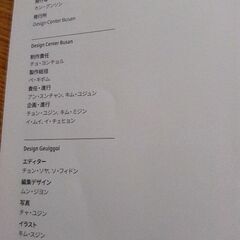 ホン・グンソン
発行所
Design Center Busan
Design Center Busan
制作責任
チョ・ヨンチョル
製作総括
ペ・キボム
責任・進行
アン・スンチャン、キム・ユジュン
企画・進行
チョン・ユジン、キム・ミジン
イ・ムイ、イ・チェヒョン
Design Geulggol
エディター
チョン・ソヤ、ソ・フィドン
編集デザイン
ムン・ジヨン
写真
チャ・ユジン
イラスト
キム・スジン